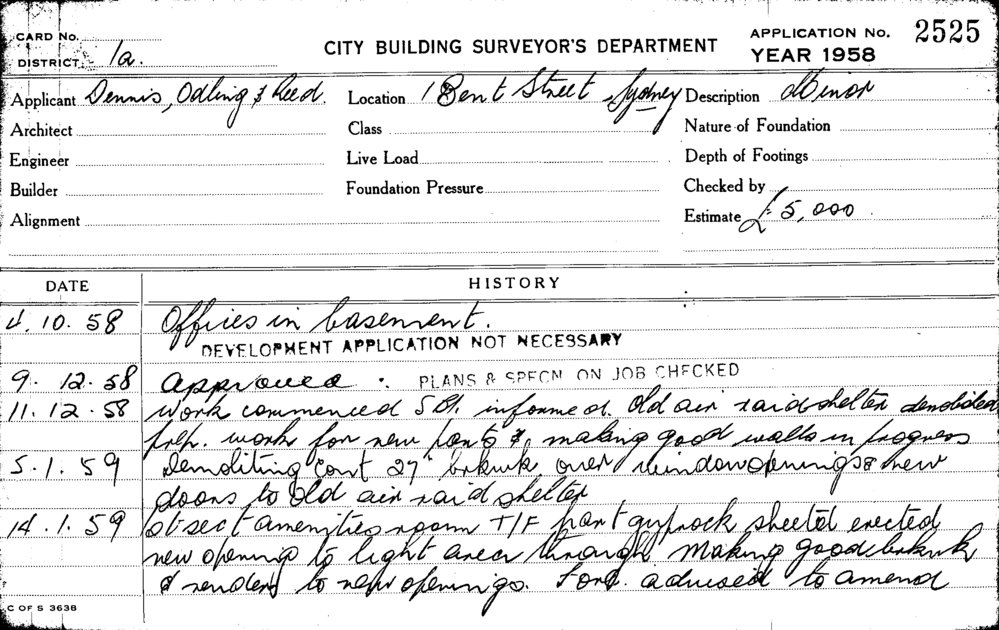 CARD No.
DISTRICT 1a.
CITY BUILDING SURVEYOR'S DEPARTMENT
APPLICATION No. 2525
YEAR 1958
Applicant Dennis, Odling & Reed. Location 1 Bent Street, Sydney Description Minor
Architect Class Nature of Foundation
Engineer Live Load Depth of Footings
Builder Foundation Pressure Checked by
Alignment Estimate £5,000
DATE HISTORY
4.10.58 Offices in basement.
DEVELOPMENT APPLICATION NOT NECESSARY
9.12.58 Approved. PLANS & SPECN ON JOB CHECKED
11.12.58 Work commenced informed. Old air raid shelter demolished
prep. work for new & making good walls in progress
5.1.59 Demoliting 27" brkwk. over window openings & new
doors to old air raid shelter
14.1.59 amenities room T/F part gyprock sheeted erected
new opening to light area through making good brkwk
& renders to new openings. advised to amend
C OF S 3638